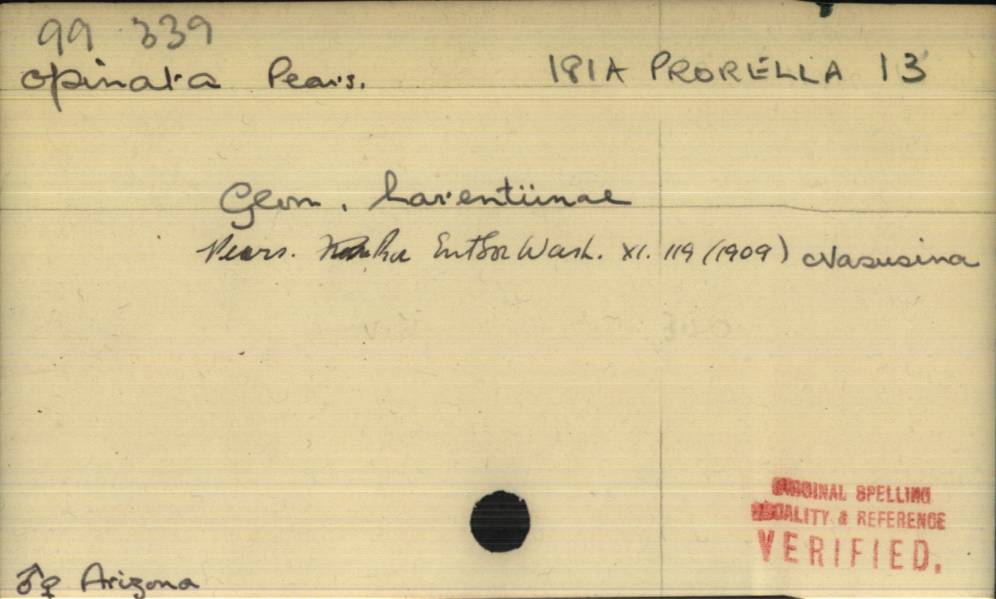 99 339
opinata Pears. 181A PRORELLA 13
Geom. Larentiinae
Pears. Ent Soc Wash. XI. 119 (1909) Nasusina
ORIGINAL SPELLING
LOCALITY & REFERENCE
VERIFIED.
♂♀ Arizona